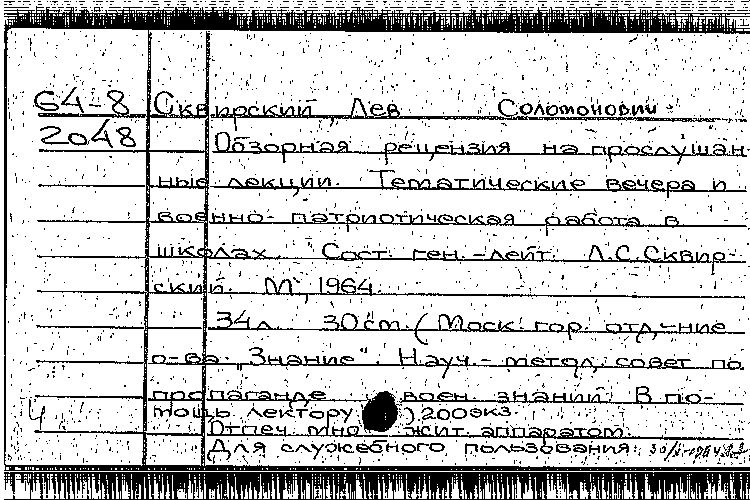 64-8 Сквирский, Лев Соломонович
2048 Обзорная рецензия на прослушан-
ные лекции. Тематические вечера и
военно-патриотическая работа в
школах. Сост. ген.-лейт. Л.С.Сквир-
ский. М., 1964.
34л. 30см. (Моск. гор. отд-ние
о-ва "Знание". Науч.-метод. совет по
пропаганде воен. знаний. В по-
мощь лектору) 200экз.
Отпеч. мно жит. аппаратом.
Для служебного пользования.